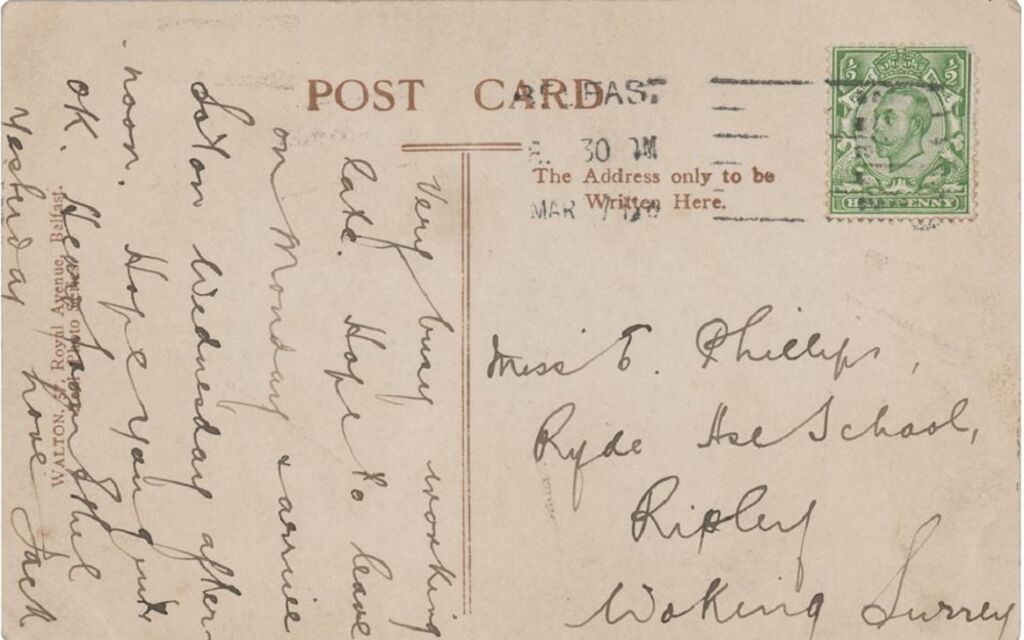 POST CARD
BELFAST
30 PM
MAR
The Address only to be
Written Here.
HALFPENNY
Very busy working
late. Hope to leave
on Monday & arrive
Wednesday after-
noon. Hope you
OK.
Yesterday love Jack
WALTON, Royal Avenue, Belfast.
Miss E. Phillips,
Ryde Hse School,
Ripley
Woking Surrey